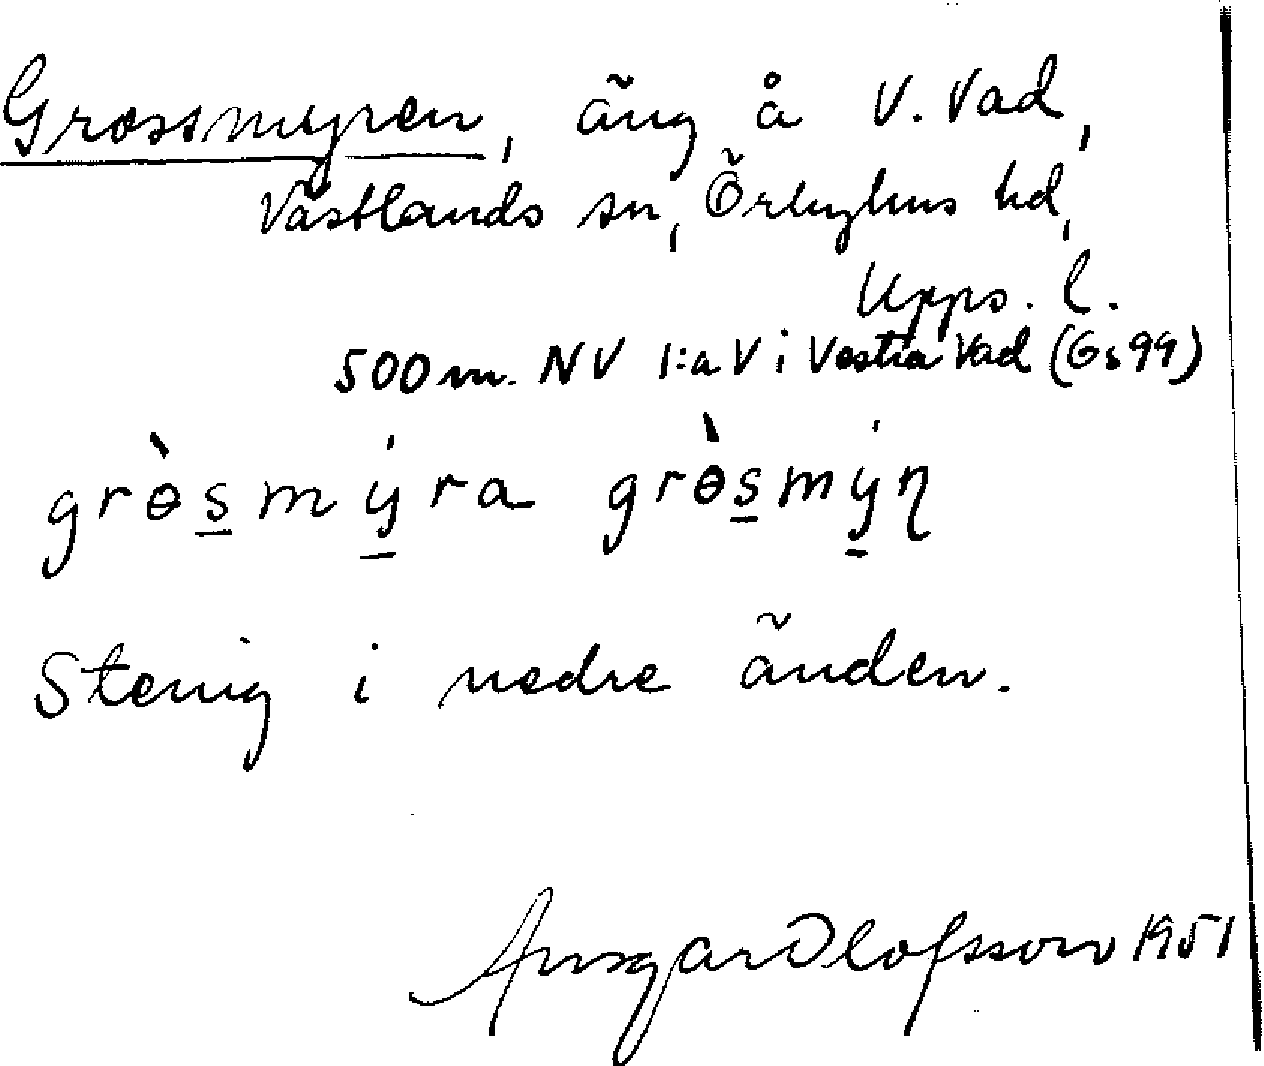 Grossmyren, äng å V. Vad,
Västlands sn, Örbyhus hd,
Upps. l.
500 m. NV 1:a V i Vestra Vad (Gs 99)
grɵ̀s̲mý̲ra grɵ̀s̲mý̲n
Stenig i nedre änden.
Ansgar Olofsson 1951